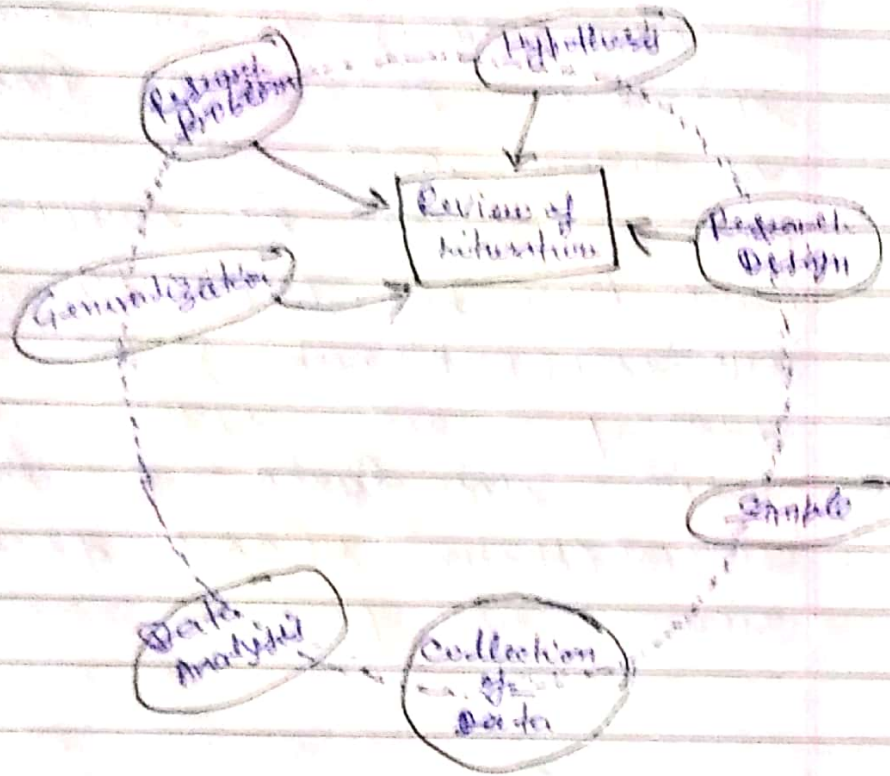 Hypothesis
Research
Problem
Review of
literature
Research
Design
Generalization
Sample
Data
Analysis
Collection
of
Data